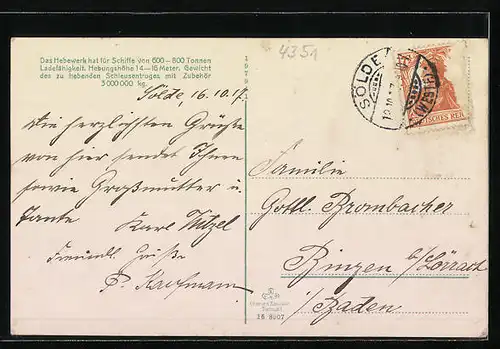 Das Hebewerk hat für Schiffe von 600–800 Tonnen
Ladefähigkeit. Hebungshöhe 14–16 Meter. Gewicht
des zu hebenden Schleusentroges mit Zubehör
3 000 000 kg.
4351
Sölde, 16.10.17.
Die herzlichsten Grüße
von hier sendet Ihnen
sowie Großmutter u.
Tante Karl Nitzel
Freundl. Grüße
P. Kaufmann
SÖLDE
(WESTF.)
DEUTSCHES REICH
Familie
Gottl. Brombacher
Binzen b/Lörrach
i/Baden
16 8007